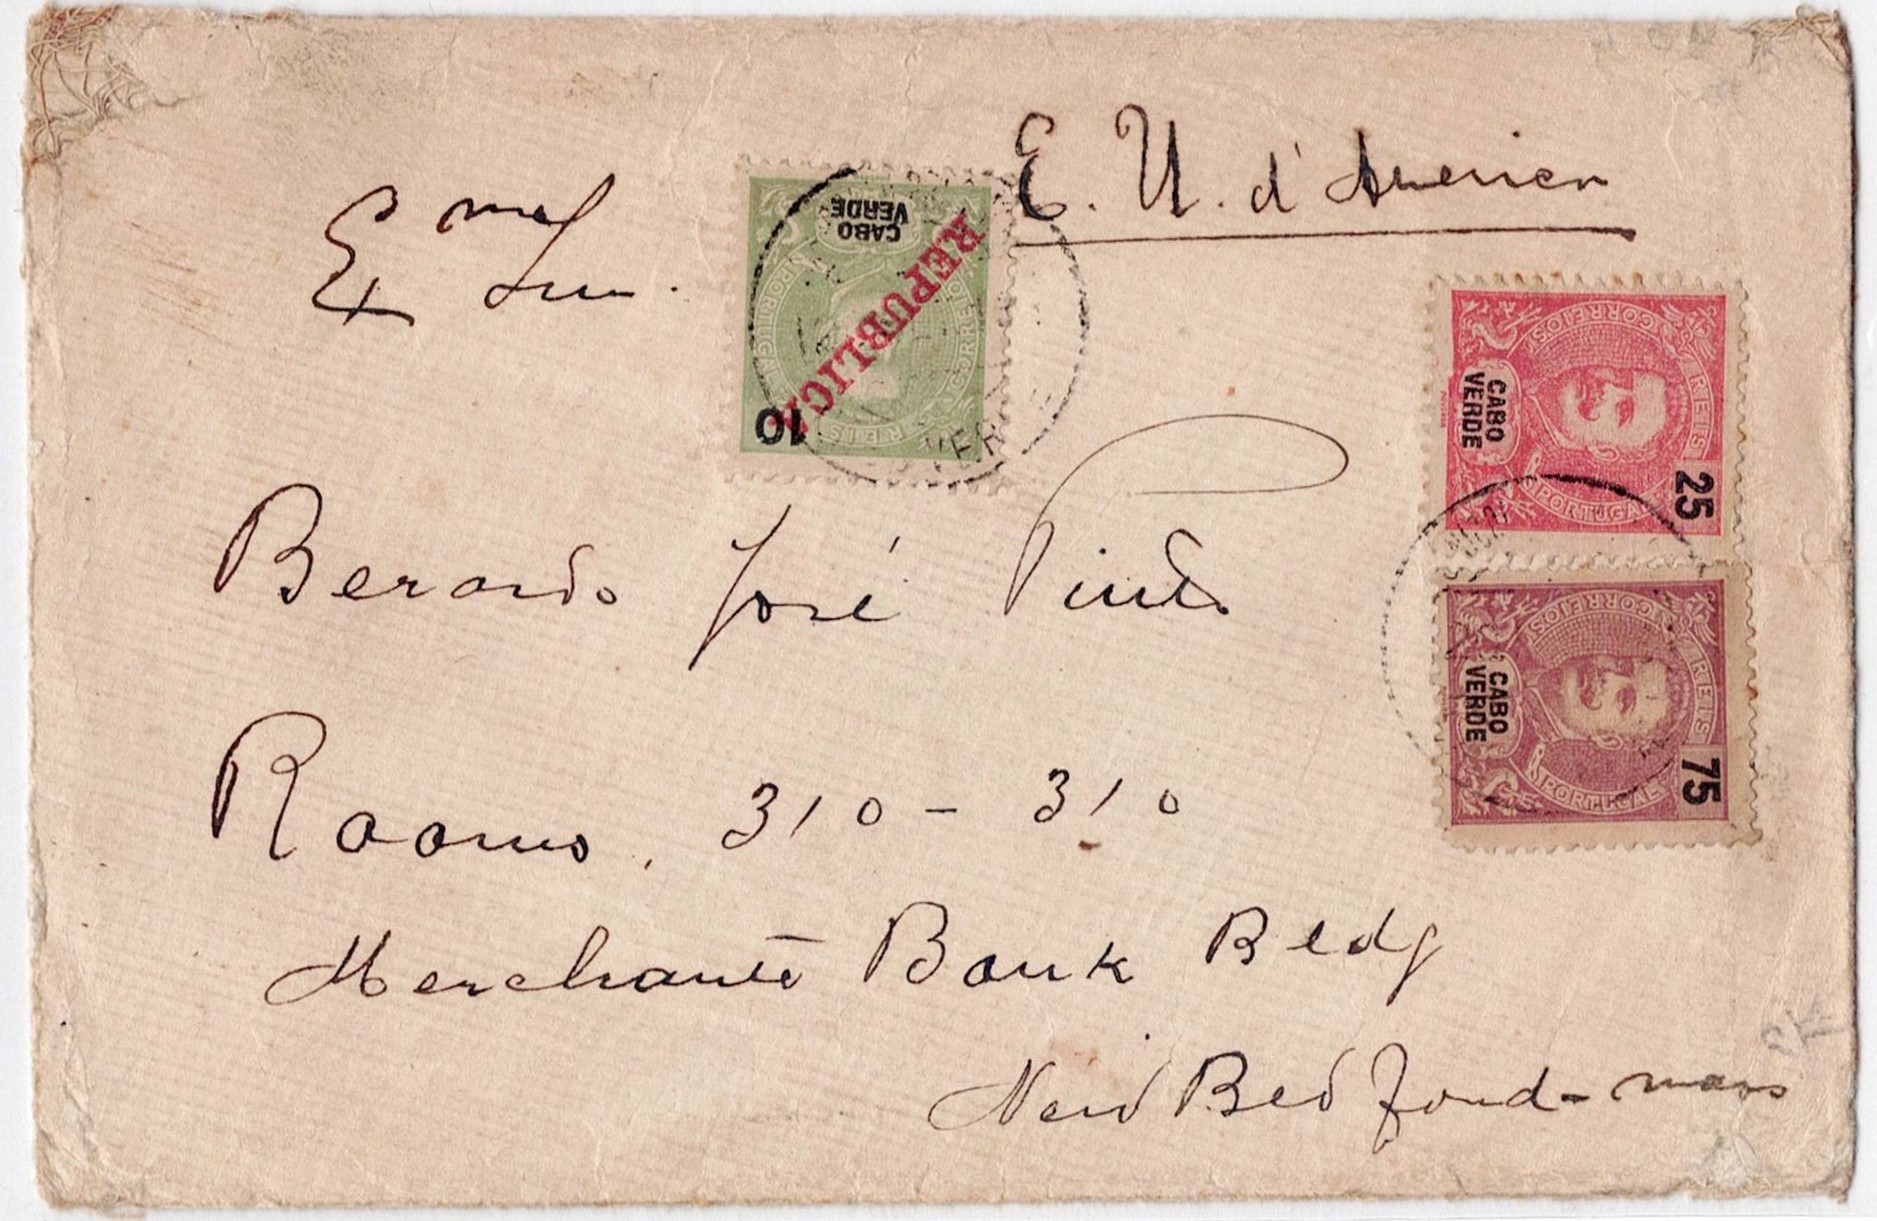 E. U. d'America
Exmo Snr.
Berardo José Pinto
Rooms, 310 - 310
Merchants Bank Bldg
New Bedford - mass
CABO
VERDE
PORTUGAL CORREIOS
REPUBLICA
10
REIS
VER
CORREIOS
REIS
CABO
VERDE
25
PORTUGAL
CORREIOS
REIS
CABO
VERDE
75
PORTUGAL